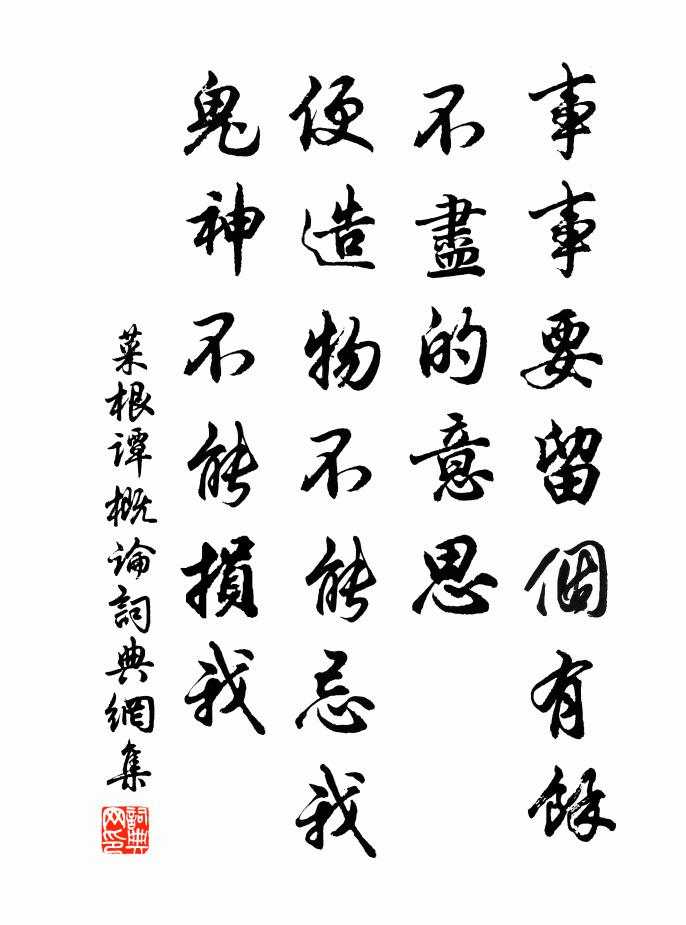 事事要留個有餘
不盡的意思
便造物不能忌我
鬼神不能損我
菜根谭概论詞典網集
詞典
网印